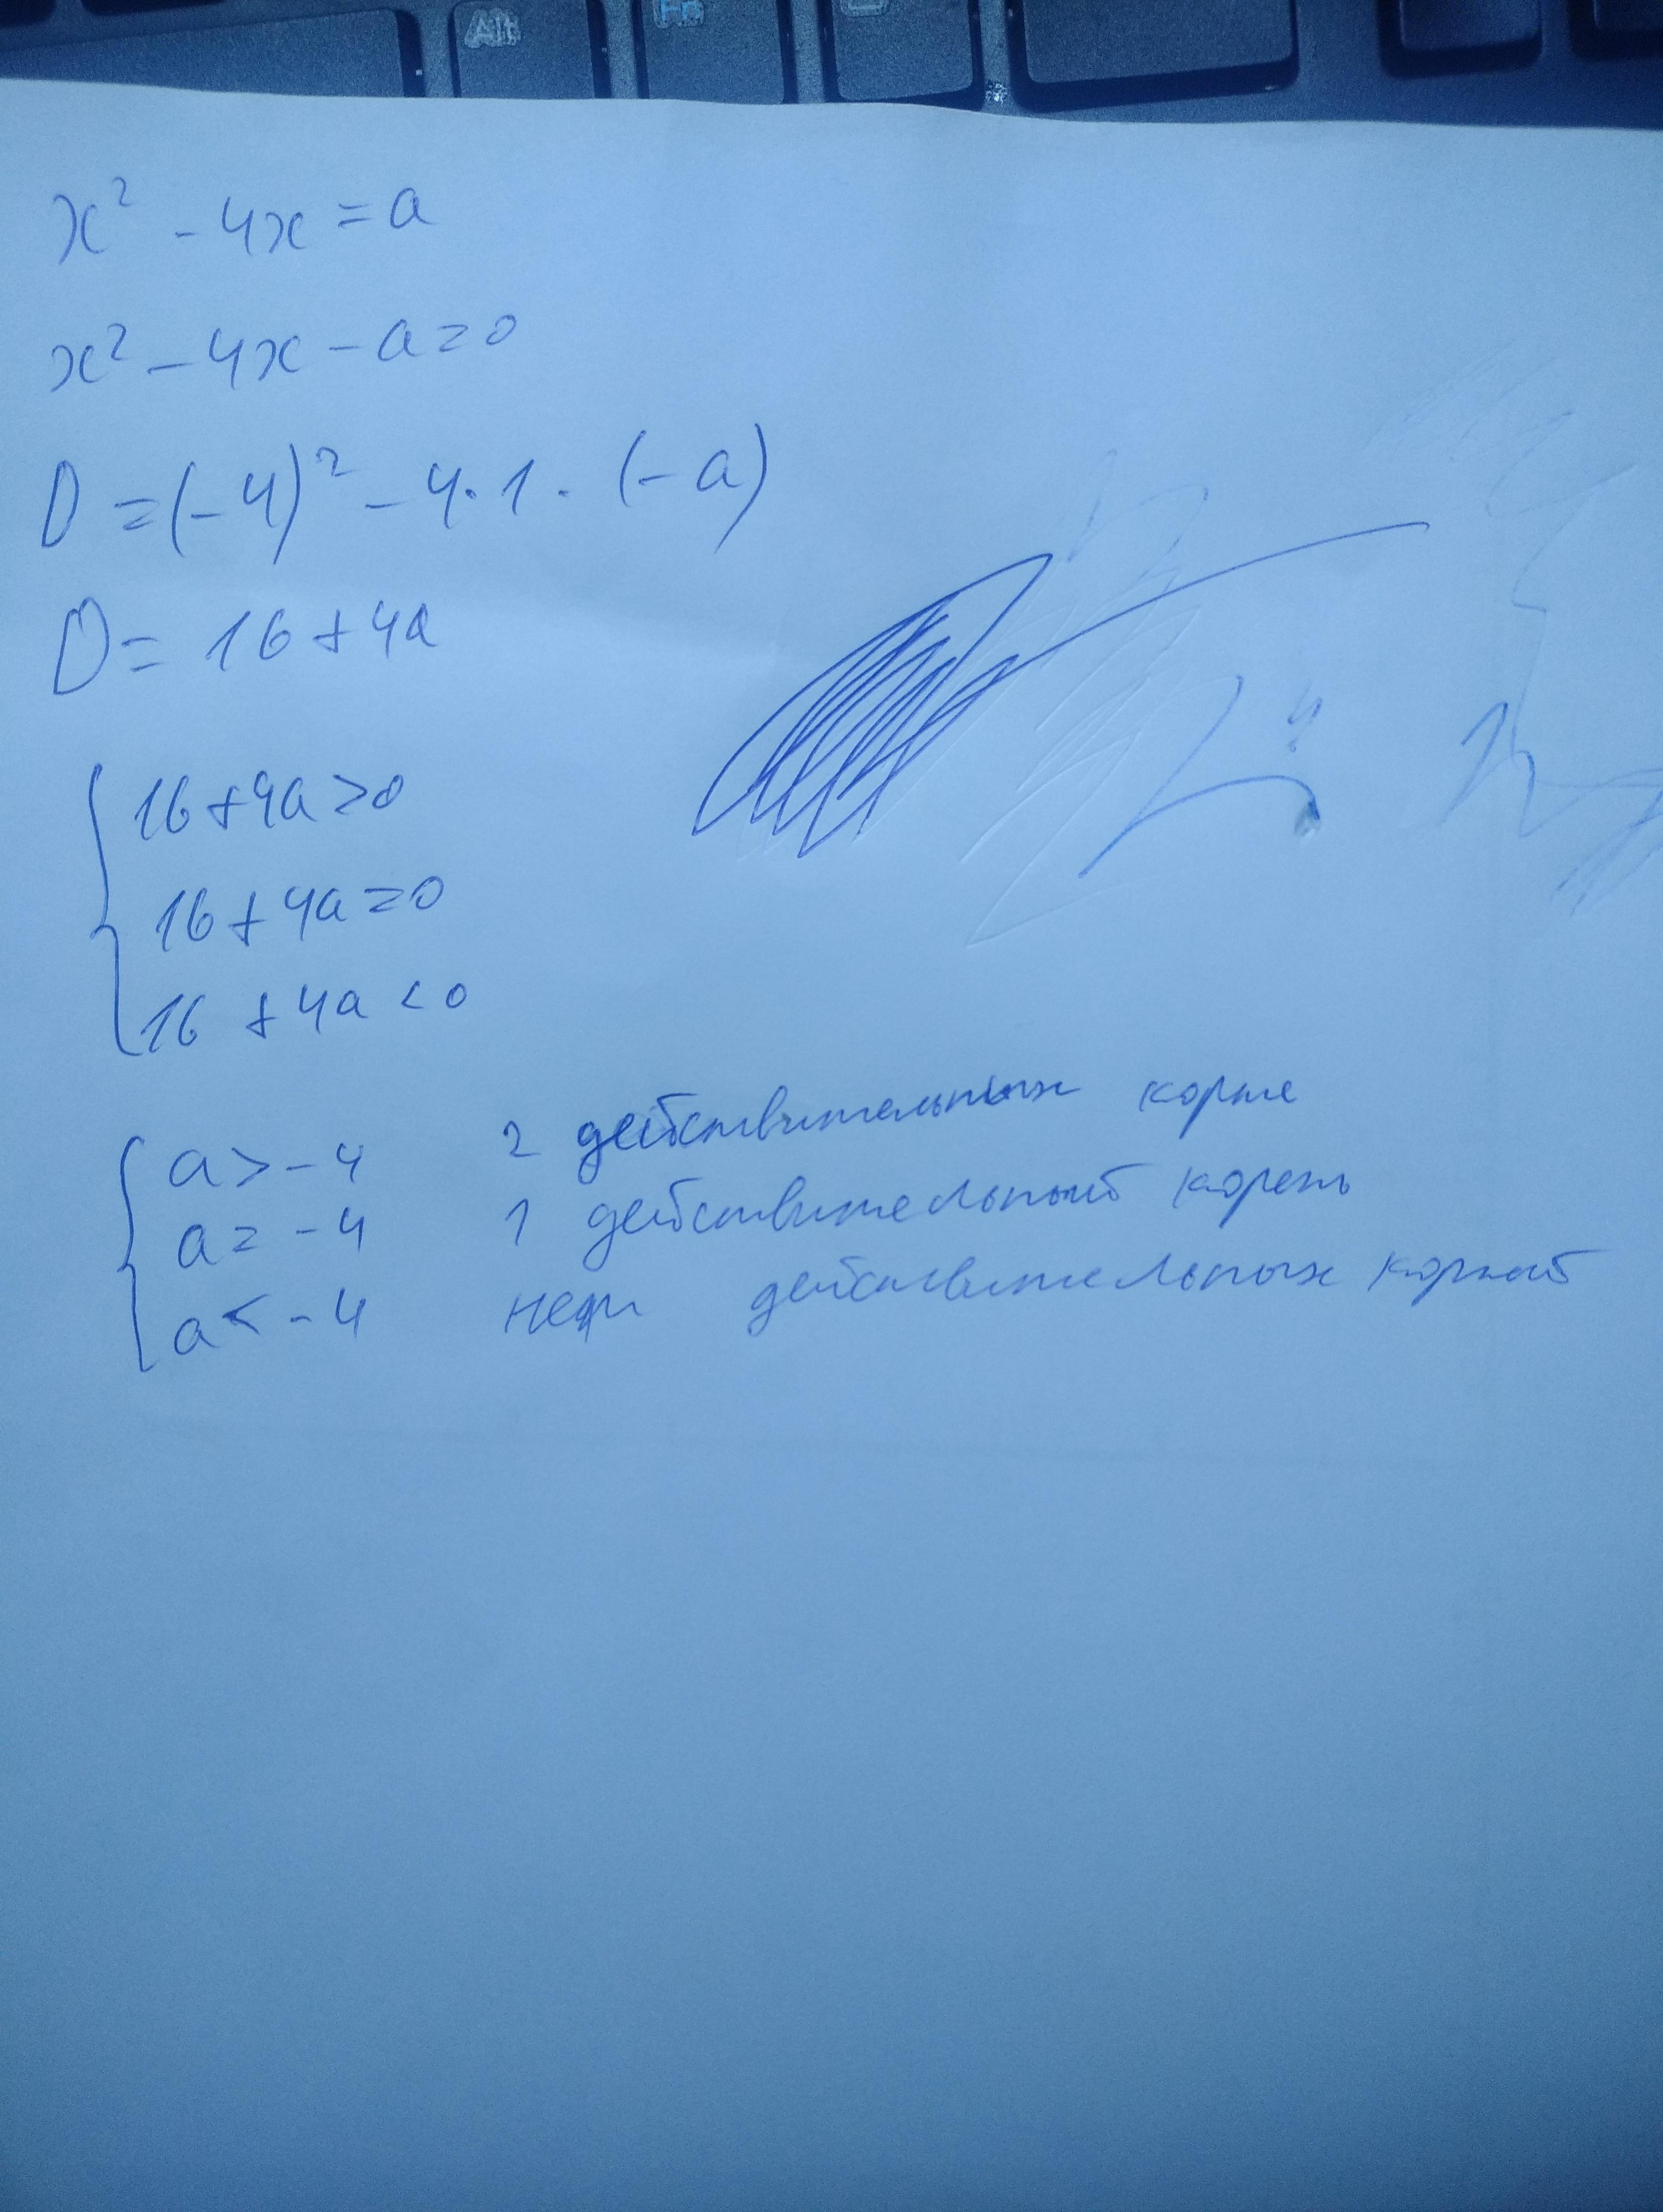 Alt
Fn
x² - 4x = a
x² - 4x - a = 0
D = (-4)² - 4 · 1 · (-a)
D = 16 + 4a
16 + 4a > 0
16 + 4a = 0
16 + 4a < 0
a > -4 2 действительных корня
a = -4 1 действительный корень
a < -4 нет действительных корней